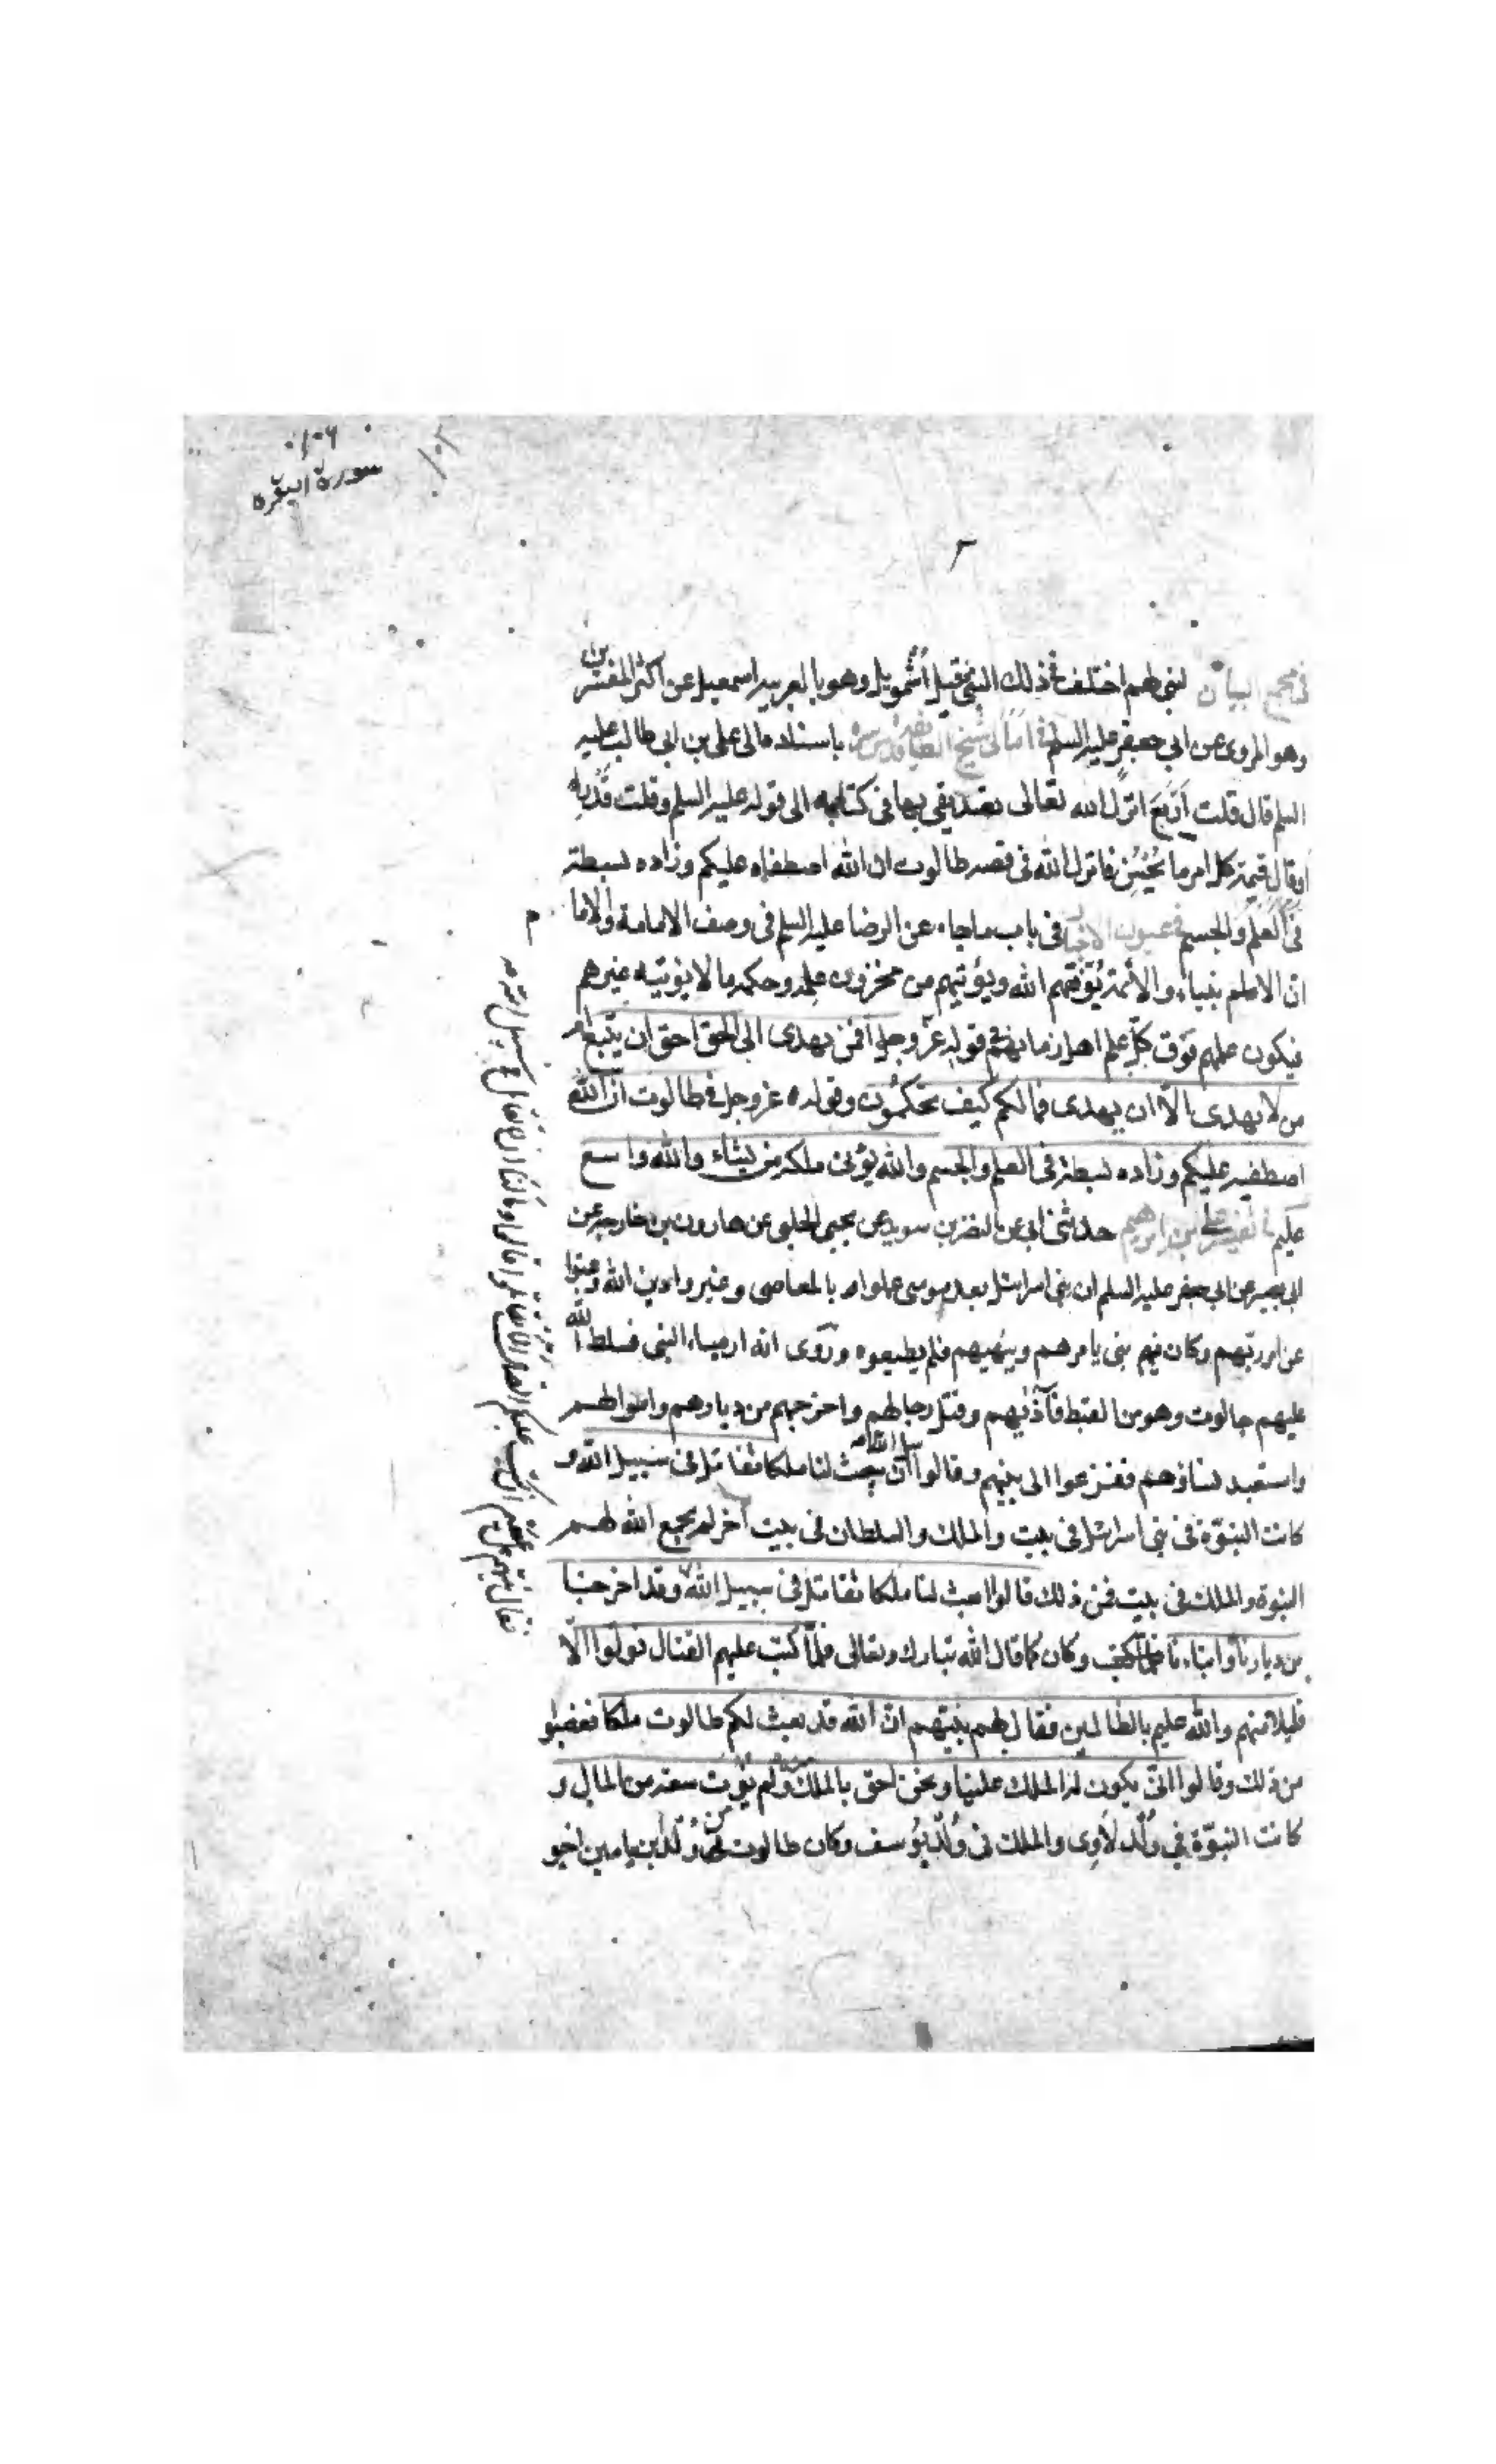 سورة البقرة
فى مجمع البيان لنبى لهم اختلف فى ذلك النبى فقيل اُشمويل وهو بالعربيه اسمعيل عن اكثر المفسرين
وهو المروى عن ابى جعفر عليه السلم فى امالى شيخ الطائفة قدس سره باسناده الى على بن ابى طالب عليه
السلم قال قلت اَربَعَ انزل الله تعالى تصديقى بها فى كتابه الى قوله عليه السلم وقلت قدر
او قال قيمة كل امرء ما يُحْسِن فانزل الله فى قصه طالوت ان الله اصطفاه عليكم وزاده بسطة
فى العلم والجسم فى عيون الاخبار فى باب ما جاء عن الرضا عليه السلم فى وصف الامامة والاما م
ان الانبياء والائمة يُوَفّقهم الله ويؤتيهم من مخزون علمه وحكمه ما لا يؤتيه غيرهم
فيكون علمهم فوق كل علم اهل زمانهم فى قوله عز وجل افمن يهدى الى الحق احق ان يتبع ام
من لا يهدى الا ان يهدى فما لكم كيف تحكمون وقوله عز وجل فى طالوت ان الله
اصطفيه عليكم وزاده بسطة فى العلم والجسم والله يؤتى ملكه من يشاء والله واسع
عليم فى تفسير على بن ابراهيم حدثنى ابى عن النضر بن سويد عن يحيى الحلبى عن هارون بن خارجه عن
ابى بصير عن ابى جعفر عليه السلم ان بنى اسرائيل بعد موسى عملوا بالمعاصى وغيروا دين الله وعتوا
عن امر ربهم وكان فيهم نبى يامرهم وينهيهم فلم يطيعوه وروى انه ارمياء النبى فسلط الله
عليهم جالوت وهو من القبط فآذٰيهم وقتل رجالهم واخرجهم من ديارهم واموالهم
واستعبد نساؤهم ففزعوا الى نبيهم وقالوا سل الله ان يبعث لنا ملكا نقاتل فى سبيل الله و
كانت النبوّة فى بنى اسرائيل فى بيت والملك والسلطان فى بيت آخر لم يجمع الله لهم
النبوة والملك فى بيت فمن ذلك قالوا ابعث لنا ملكا نقاتل فى سبيل الله وقد اخرجنا
من ديارنا وابناءنا وكان كما قال الله تبارك وتعالى فلمّا كتب عليهم القتال تولّوا الّا
قليلا منهم والله عليم بالظالمين فقال لهم نبيّهم انّ الله قد بعث لكم طالوت ملكا فغضبوا
من ذلك وقالوا انّى يكون له الملك علينا ونحن احق بالملك منه ولم يؤت سعة من المال و
كانت النبوّة فى وُلْد لاوى والملك فى وُلْد يُوسف وكان طالوت من وُلْد ابن يامين اخو
فقال لهم نبيهم هل عسيتم ان كتب عليكم القتال الّا تقاتلوا قالوا وما لنا ان لا نقاتل فى سبيل الله